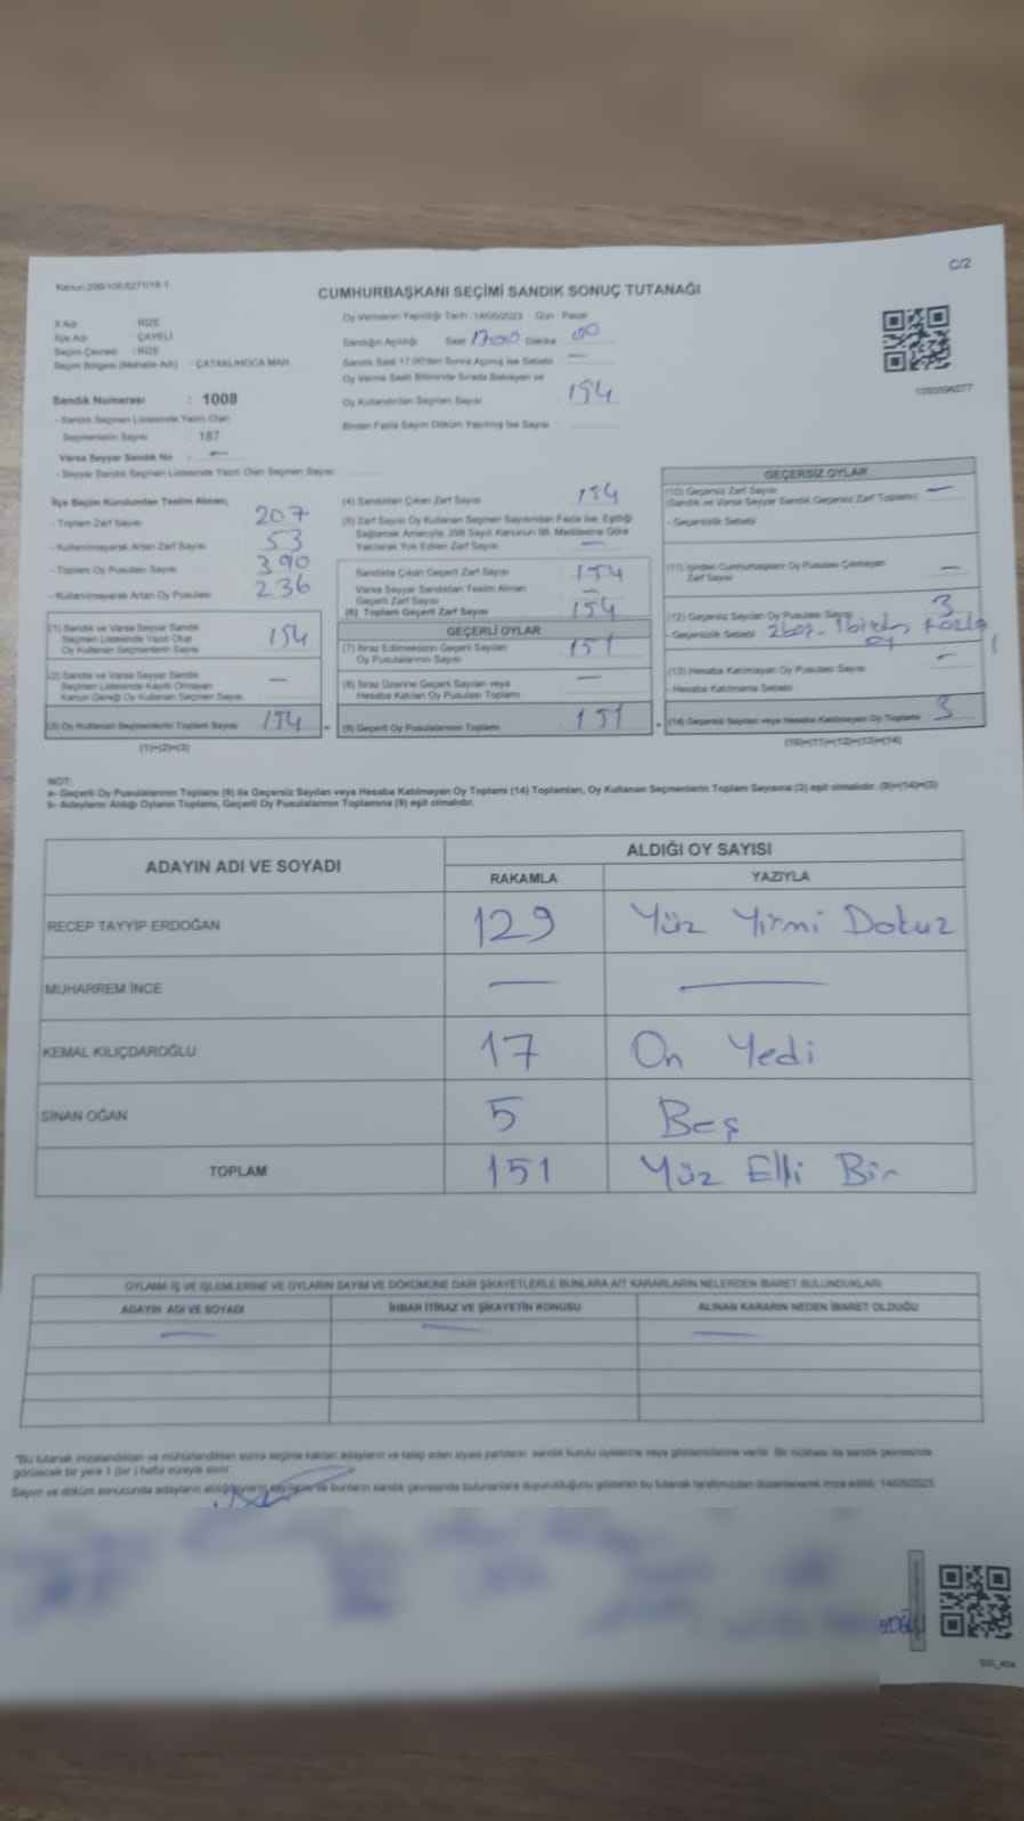 C/2
CUMHURBAŞKANI SEÇİMİ SANDIK SONUÇ TUTANAĞI
İl Adı : RİZE
İlçe Adı : ÇAYELİ
Seçim Çevresi : RİZE
Seçim Bölgesi (Mahalle Adı) : ÇATAKLIHOCA MAH.
Oy Vermenin Yapıldığı Tarih : 14/05/2023 Gün : Pazar
Sandığın Açıldığı Saat 17:00 Dakika 00
Sandık Saat 17.00'den Sonra Açılmış İse Sebebi —
Oy Verme Saati Bitiminde Sırada Bekleyen ve
Oy Kullandırılan Seçmen Sayısı 154
Birden Fazla Sayım Döküm Yapılmış İse Sayısı
Sandık Numarası : 1008
- Sandık Seçmen Listesinde Yazılı Olan
Seçmenlerin Sayısı 187
Varsa Seyyar Sandık No : —
- Seyyar Sandık Seçmen Listesinde Yazılı Olan Seçmen Sayısı
İlçe Seçim Kurulundan Teslim Alınan;
- Toplam Zarf Sayısı 207
- Kullanılmayarak Artan Zarf Sayısı 53
- Toplam Oy Pusulası Sayısı 390
- Kullanılmayarak Artan Oy Pusulası 236
(1) Sandık ve Varsa Seyyar Sandık
Seçmen Listesinde Yazılı Olup
Oy Kullanan Seçmenlerin Sayısı 154
(2) Sandık ve Varsa Seyyar Sandık
Seçmen Listesinde Kayıtlı Olmayan
Kanun Gereği Oy Kullanan Seçmen Sayısı —
(3) Oy Kullanan Seçmenlerin Toplam Sayısı 154
(1)+(2)=(3)
(4) Sandıktan Çıkan Zarf Sayısı 154
(5) Zarf Sayısı Oy Kullanan Seçmen Sayısından Fazla İse, Eşitliği
Sağlamak Amacıyla, 298 Sayılı Kanunun 98. Maddesine Göre
Yakılarak Yok Edilen Zarf Sayısı —
Sandıkta Çıkan Geçerli Zarf Sayısı 154
Varsa Seyyar Sandıktan Teslim Alınan
Geçerli Zarf Sayısı —
(6) Toplam Geçerli Zarf Sayısı 154
GEÇERLİ OYLAR
(7) İtiraz Edilmeksizin Geçerli Sayılan
Oy Pusulalarının Sayısı 151
(8) İtiraz Üzerine Geçerli Sayılan veya
Hesaba Katılan Oy Pusulası Toplamı —
(9) Geçerli Oy Pusulalarının Toplamı 151
GEÇERSİZ OYLAR
(10) Geçersiz Zarf Sayısı
(Sandık ve Varsa Seyyar Sandık Geçersiz Zarf Toplamı) —
- Geçersizlik Sebebi
(11) İçinden Cumhurbaşkanı Oy Pusulası Çıkmayan
Zarf Sayısı —
(12) Geçersiz Sayılan Oy Pusulası Sayısı 3
- Geçersizlik Sebebi 2 boş - 1 birden fazla
oy
(13) Hesaba Katılmayan Oy Pusulası Sayısı —
- Hesaba Katılmama Sebebi
(14) Geçersiz Sayılan veya Hesaba Katılmayan Oy Toplamı 3
(10)+(11)+(12)+(13)=(14)
NOT:
a- Geçerli Oy Pusulalarının Toplamı (9) ile Geçersiz Sayılan veya Hesaba Katılmayan Oy Toplamı (14) Toplamları, Oy Kullanan Seçmenlerin Toplam Sayısına (3) eşit olmalıdır. (9)+(14)=(3)
b- Adayların Aldığı Oyların Toplamı, Geçerli Oy Pusulalarının Toplamına (9) eşit olmalıdır.
ADAYIN ADI VE SOYADI
ALDIĞI OY SAYISI
RAKAMLA YAZIYLA
RECEP TAYYİP ERDOĞAN 129 Yüz Yirmi Dokuz
MUHARREM İNCE — —
KEMAL KILIÇDAROĞLU 17 On Yedi
SİNAN OĞAN 5 Beş
TOPLAM 151 Yüz Elli Bir
OYLAMA İŞ VE İŞLEMLERİNE VE OYLARIN SAYIM VE DÖKÜMÜNE DAİR ŞİKAYETLERLE BUNLARA AİT KARARLARIN NELERDEN İBARET BULUNDUKLARI
ADAYIN ADI VE SOYADI İHBAR İTİRAZ VE ŞİKAYETİN KONUSU ALINAN KARARIN NEDEN İBARET OLDUĞU
— — —